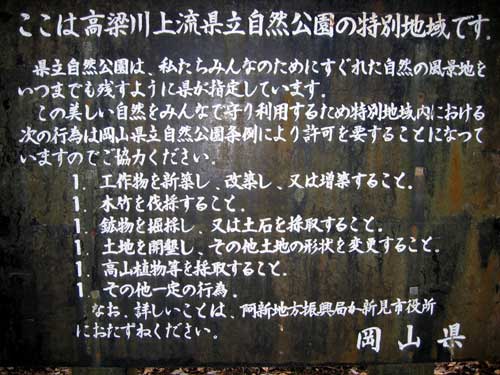 ここは高梁川上流県立自然公園の特別地域です.
県立自然公園は、私たちみんなのためにすぐれた自然の風景地を
いつまでも残すように県が指定しています.
この美しい自然をみんなで守り利用するため特別地域内における
次の行為は岡山県立自然公園条例により許可を要することになって
いますのでご協力ください.
1. 工作物を新築し、改築し、又は増築すること.
1. 木竹を伐採すること.
1. 鉱物を掘採し、又は土石を採取すること.
1. 土地を開墾し、その他土地の形状を変更すること.
1. 高山植物等を採取すること.
1. その他一定の行為.
なお、詳しいことは、阿新地方振興局か新見市役所
におたずねください.
岡山県